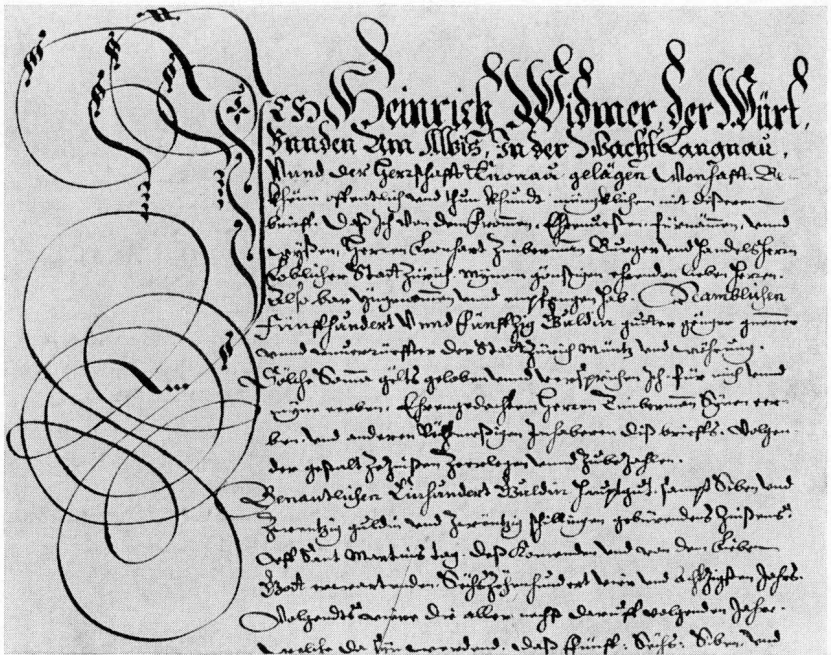 Ich Heinrich Widmer, der Würt,
Hunden Am Albis, In der Wacht Langnau,
Unnd der Herrschafft Knonau gelägen Wonhafft. Be-
khënn offentlich und thun khundt mengklichem mit disserem
brieff. Daß Ich von dem Frommen, Ehrnvesten fürnämmen, unnd
wyßen, Herren Leonhard Zimberman Burger und Handelsherrn
Loblicher Statt Zürich, mynem günstigen ehrenden lieben Herren.
Also bar yngenommen unnd empfangen hab. Namblichen
Fünffhundert Unnd Fünffzig Guldin gutter gänger gnemmer
unnd unverrüeffter der Statt Zürich Müntz und währung.
Söliche Summa gelts geloben unnd versprichen Ich für mich unnd
myne erben. Ehrengedachtem Herren Zimberman Synen er-
ben, und anderen Rechtmeßigen Inhaberen diß brieffs. Volgen-
der gestalt Zverzinßen Zverleggen unnd Zubezahlen.
Benantlichen Einhundert Guldin Hauptgut, sampt Siben und
Zwentzig guldin und Zwëntzig schillingen gebürenden Zinßens.
Uff Sant Martins tag, deß Komenden und von dem Lieben
Gott erwartenden Sëchszëhenhundert ein und Achtzigsten Jahrs.
Volgendts inn die aller nechst daruff volgenden Jahr.
welche da syn werdend. Daß Fünff: Sëchs: Siben: und